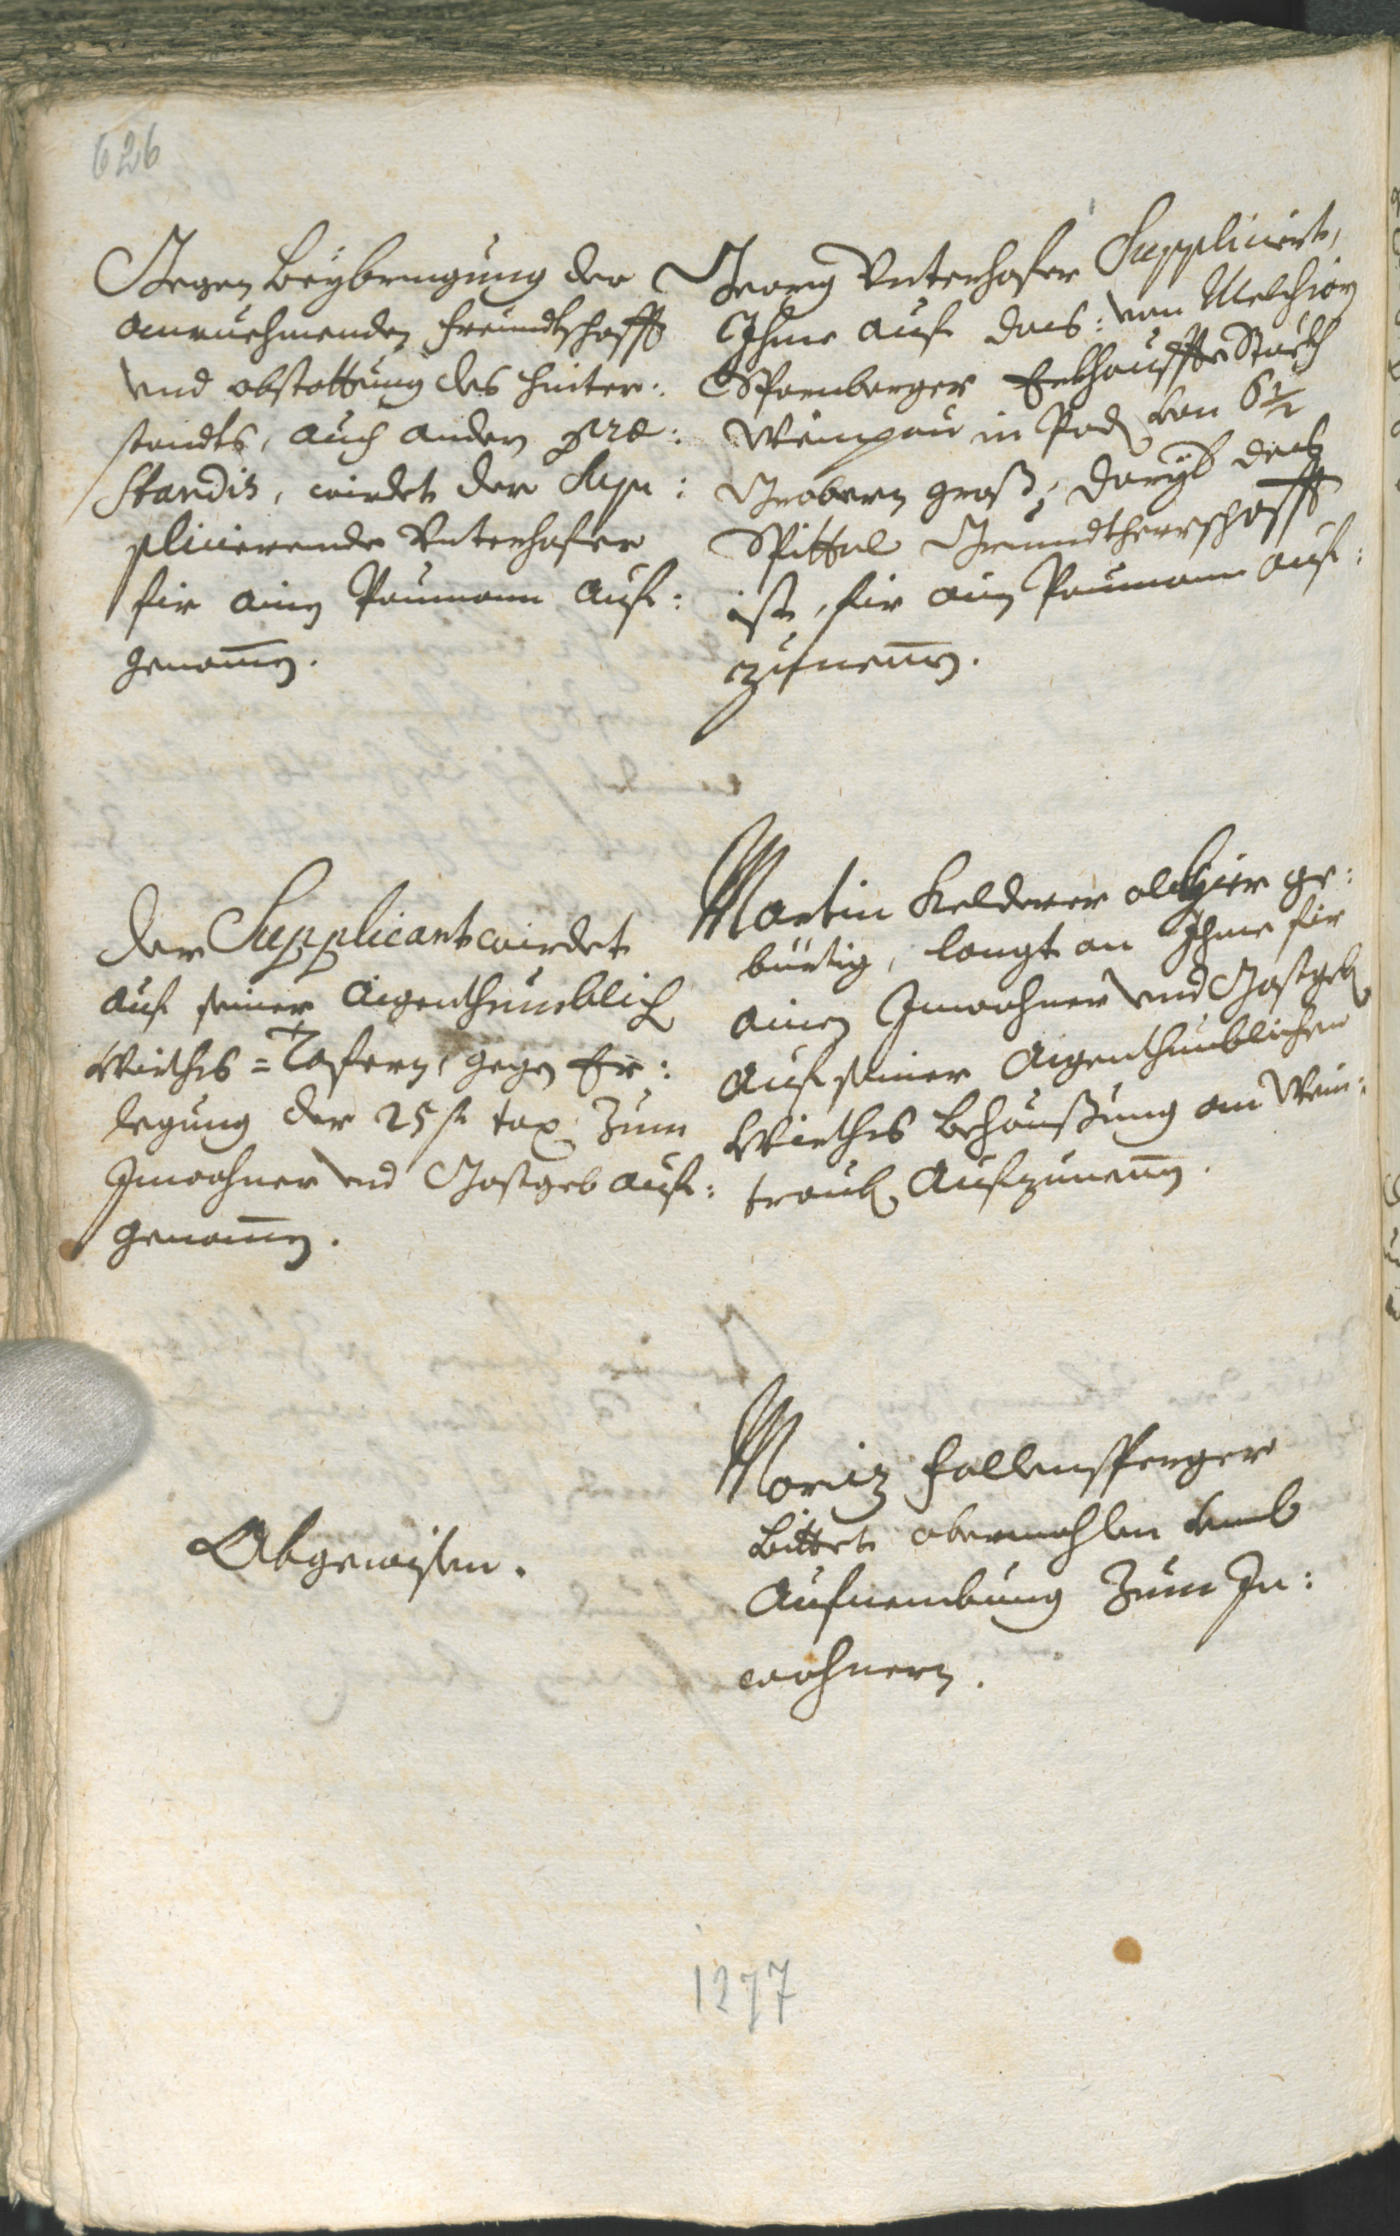 626
Gegen Beybringung der
anruehmenden Freundtschafft
und abstattung des hinter:
standts, auch andern præ:
standis, wirdet der Sup:
plicierende Unterhofer
für ainen Paumann auf:
genomen.
Georg Unterhofer Supplicirt,
Ihme auf das: von Melchiorn
Erkhauffte Stuckh
in von 6½
Grabern groß, deß
Spittal Grundtherrschafft
ist, für ain Paumann auf:
zunemen.
Der Supplicant wirdet
auf seiner aigenthumblich
Wirths=Tafern, gegen Er:
legung der 25 f tax zum
Inwohner und Gastgeb auf:
genomen.
Martin Kelderer alhier ge:
bürtig, langt an Ihme für
ainen Inwohner und Gastgeb
auf seiner aigenthumblichen
Wirths Behaußung am Wein:
traub aufzunemen.
Abgewisen.
Moriz Fallensperger
bittet abermahlen umb
Aufnembung zum In:
wohnern.
1277